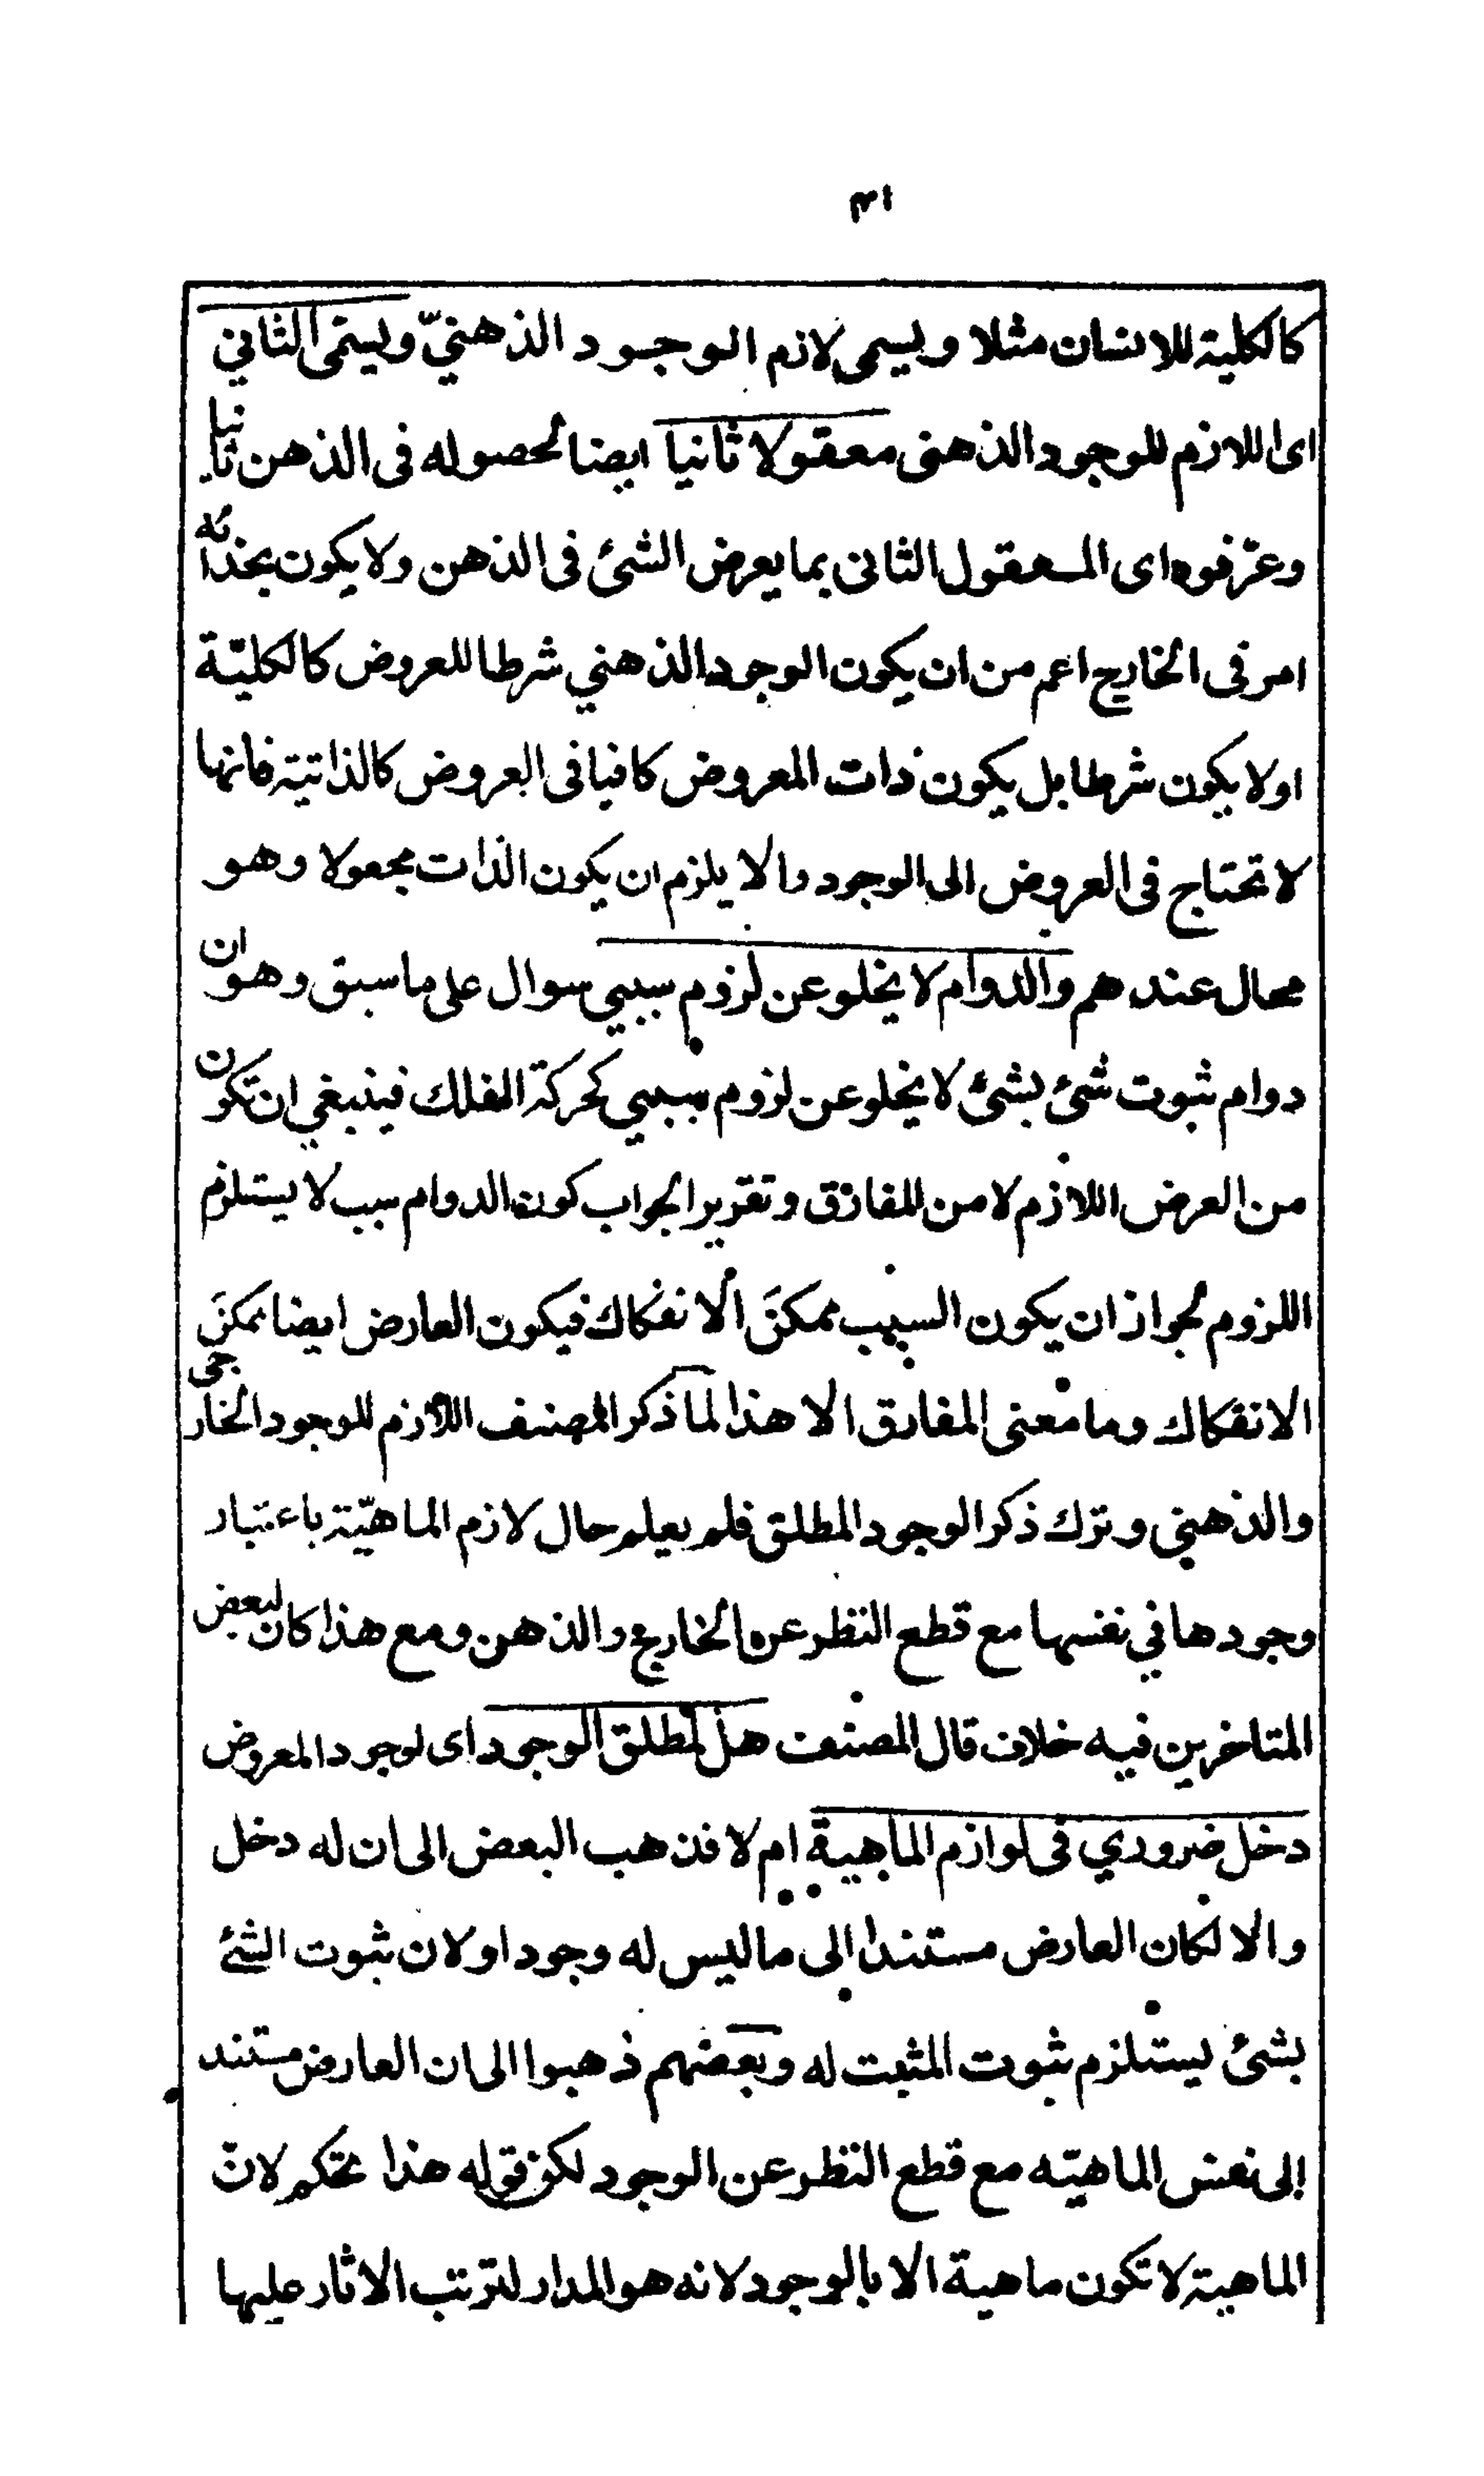 ٣١
كالكلية للانسان مثلا ويسمى لازم الوجود الذهنيّ ويسمّى الثاني
اى اللازم للوجود الذهنى معقولا ثانيا ايضا لحصوله فى الذهن ثانيا
وعرّفوه اى المعقول الثانى بما يعرض الشئ فى الذهن ولا يكون بحذائه
امر فى الخارج اعم من ان يكون الوجود الذهني شرطا للعروض كالكليّة
او لا يكون شرطا بل يكون ذات المعروض كافيا فى العروض كالذاتية فانها
لا تحتاج فى العروض الى الوجود والا يلزم ان يكون الذات مجعولا وهو
محال عندهم والدوام لا يخلو عن لزوم سببي سوال على ما سبق وهو ان
دوام ثبوت شئ بشئ لا يخلو عن لزوم سببي كحركة الفلك فينبغي ان تكون
من العرض اللازم لا من المفارق وتقرير الجواب كون الدوام سبب لا يستلزم
اللزوم لجواز ان يكون السبب ممكنَ الانفكاك فيكون العارض ايضا ممكنَ
الانفكاك وما معنى المفارق الا هذا لما ذكر المصنف اللازم للوجود الخارجى
والذهنى وترك ذكر الوجود المطلق فلم يعلم حال لازم الماهيّة باعتبار
وجودها في نفسها مع قطع النظر عن الخارج والذهن ومع هذا كان لبعض
المتاخرين فيه خلاف قال المصنف هل لمطلق الوجود اى لوجود المعروض
دخل ضروري فى لوازم الماهية ام لا فذهب البعض الى ان له دخل
والا لكان العارض مستندا الى ما ليس له وجود اولان ثبوت الشئ
بشئ يستلزم ثبوت المثبت له وبعضهم ذهبوا الى ان العارض مستند
الى نفس الماهيّه مع قطع النظر عن الوجود لكن قوله هذا تحكم لانّ
الماهية لا تكون ماهية الا بالوجود لانه هو المدار لترتب الاثار عليها